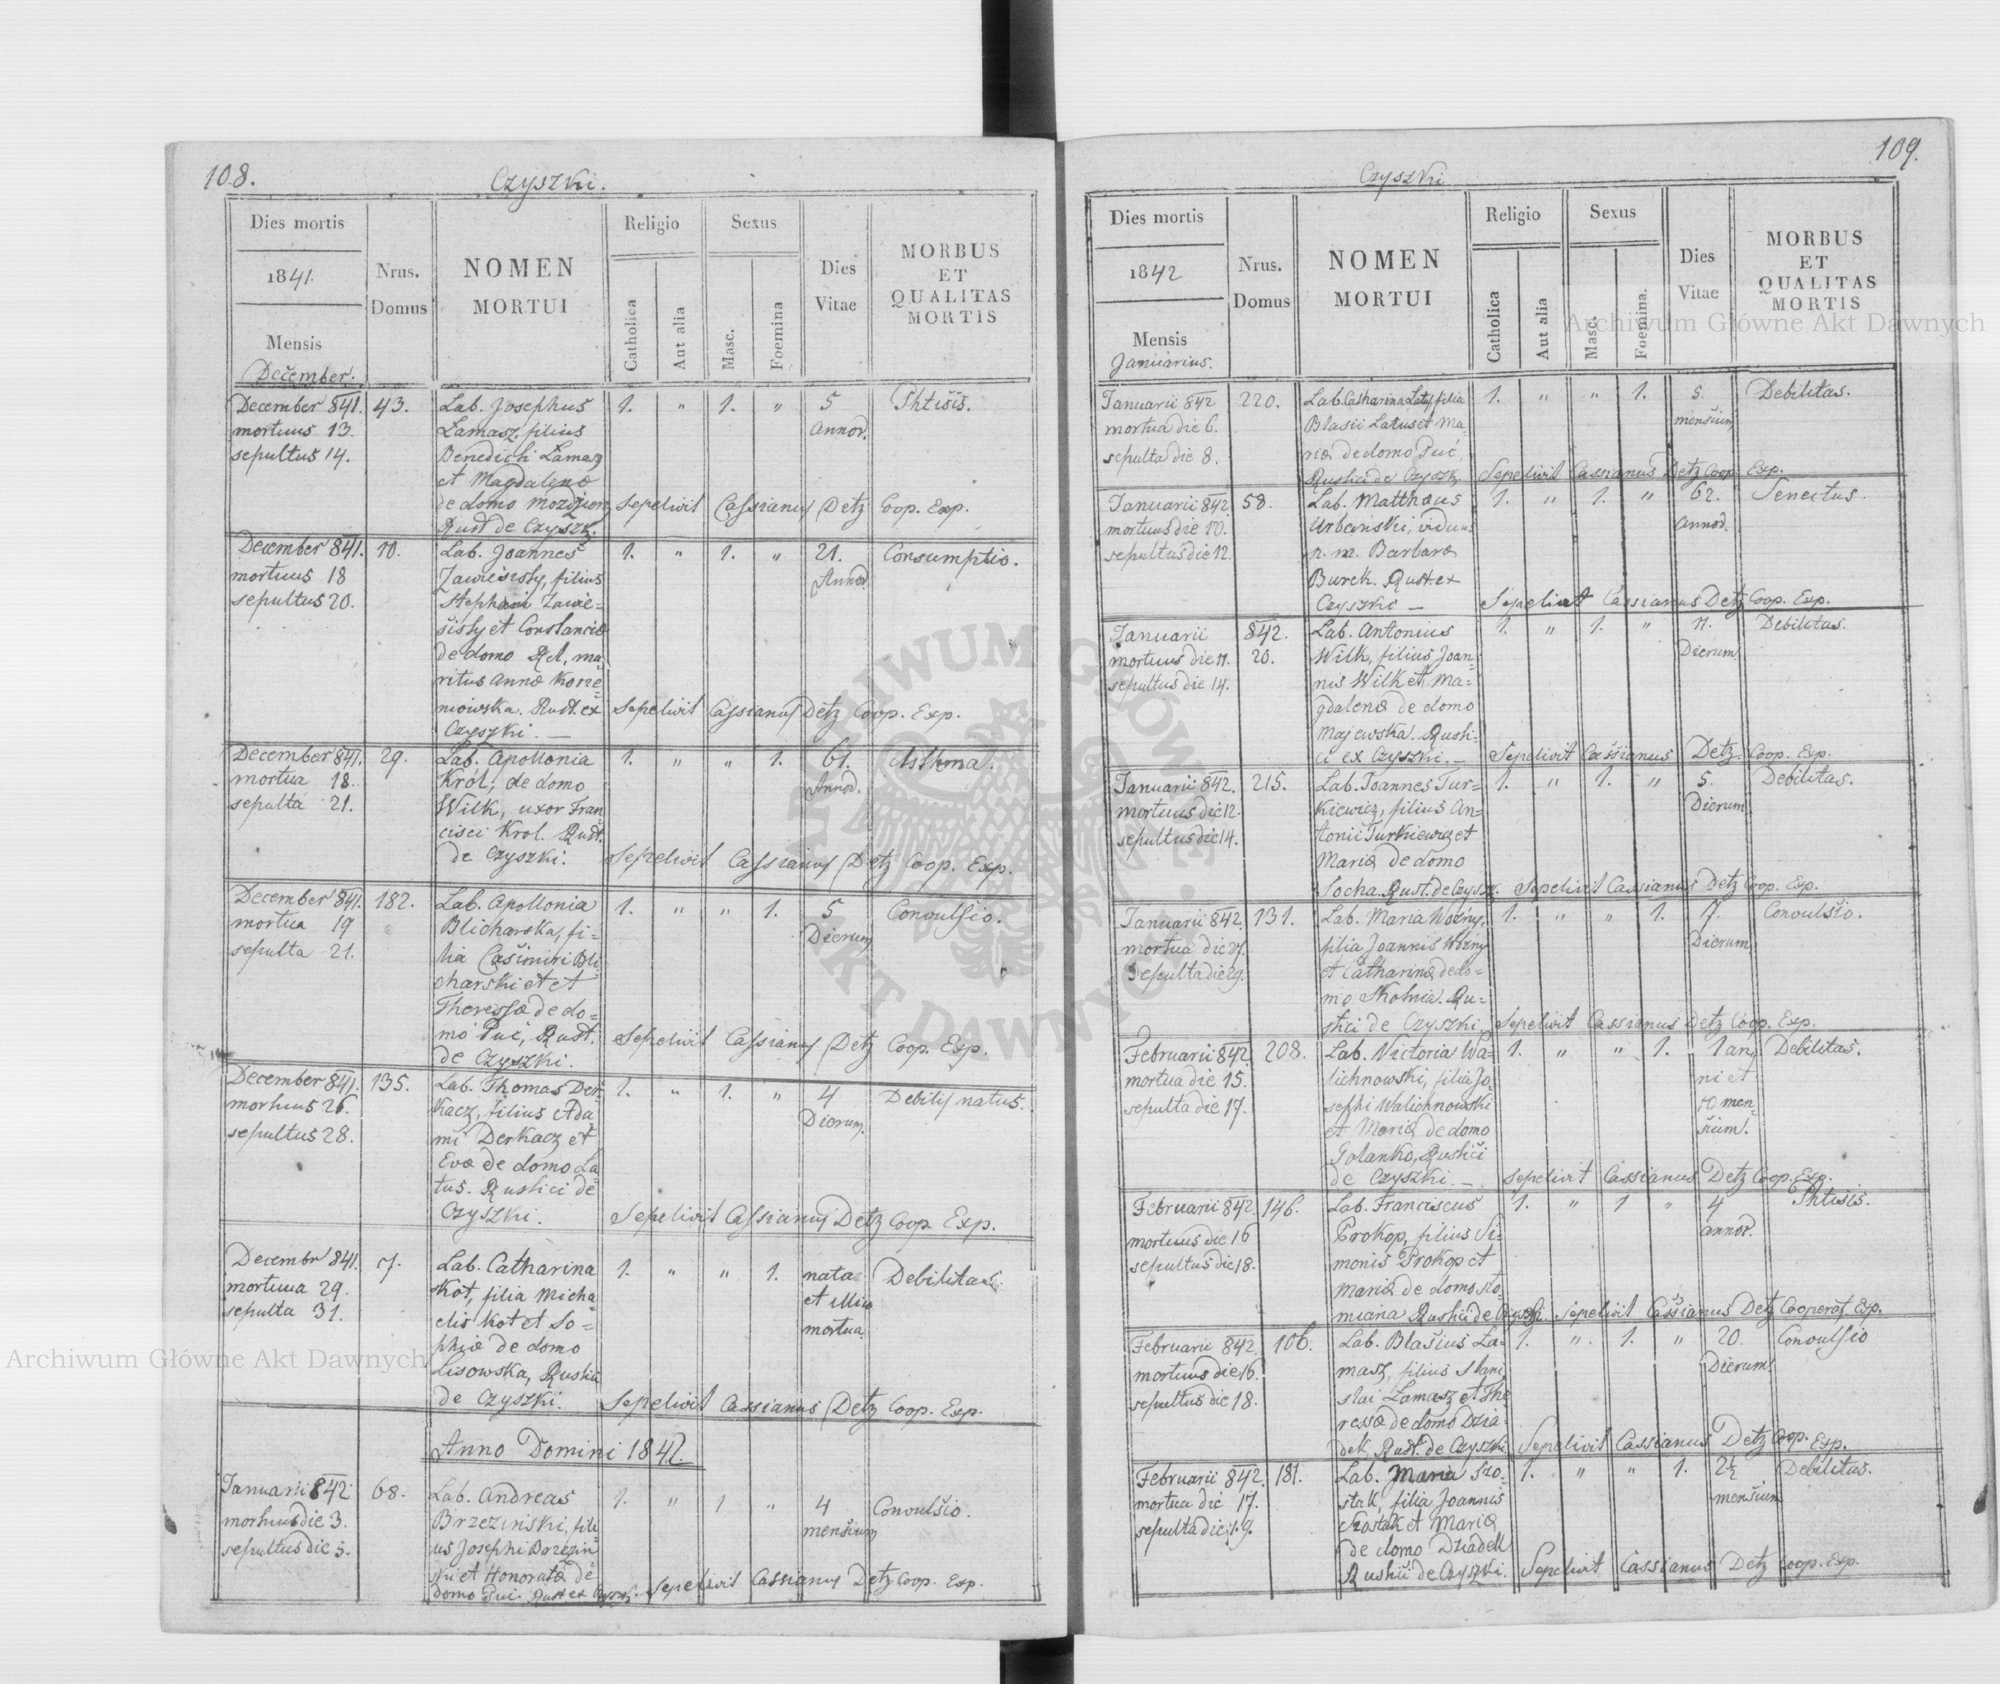 108.
Czyszki.
Dies mortis
1841.
Mensis
December.
Nrus.
Domus
NOMEN
MORTUI
Religio
Catholica
Aut alia
Sexus
Masc.
Foemina
Dies
Vitae
MORBUS
ET
QUALITAS
MORTIS
December 841. 43. Lab. Josephus 1. " 1. " 5 Phtisis.
mortuus 13. Łamasz, filius Annor.
sepultus 14. Benedicti Łamasz
et Magdalena
de domo Sepelivit Cassianus Detz Coop. Exp.
Rust. de Czyszki.
December 841. 10. Lab. Joannes 1. " 1. " 21. Consumptio.
mortuus 18 filius Annor.
sepultus 20. Stephani
et Constancia
de domo ma=
ritus Anna
Rust. ex Sepelivit Cassianus Detz Coop. Exp.
Czyszki. —
December 841. 29. Lab. Apollonia 1. " " 1. 61. Asthma.
mortua 18. Krol, de domo Annor.
sepulta 21. Wilk, uxor Fran=
cisci Krol. Rust.
de Czyszki. Sepelivit Cassianus Detz Coop. Exp.
December 841. 182. Lab. Apollonia 1. " " 1. 5 Convulsio.
mortua 19 Blicharska, fi= Dierum
sepulta 21. lia Casimiri Bli
charski et et
Theressa de do=
mo Puć, Rust. Sepelivit Cassianus Detz Coop. Exp.
de Czyszki.
December 841. 135. Lab. Thomas Der= 1. " 1. " 4 Debilis natus.
mortuus 26. kacz, filius Ada Dierum.
sepultus 28. mi Derkacz et
Eva de domo La
tus. Rustici de
Czyszki. Sepelivit Cassianus Detz Coop. Exp.
Decembr 841. 7. Lab. Catharina 1. " " 1. nata Debilitas.
mortua 29. Kot, filia Micha= et illico
sepulta 31. elis Kot et So= mortua
phia de domo
Lisowska, Rustici
de Czyszki. Sepelivit Cassianus Detz Coop. Exp.
Anno Domini 1842.
Januarii 842 68. Lab. Andreas 1. " 1 " 4 Convulsio.
mortuus die 3. Brzezinski, fili mensium
sepultus die 5. us Josephi Brzezin=
ski et Honorata de
domo Puć. Rust ex Czyszki. Sepelivit Cassianus Detz Coop. Exp.
109.
Czyszki
Dies mortis
1842
Mensis
Januarius.
Nrus.
Domus
NOMEN
MORTUI
Religio
Catholica
Aut alia
Sexus
Masc.
Foemina.
Dies
Vitae
MORBUS
ET
QUALITAS
MORTIS
Januarii 842 220. Lab. Catharina Latus filia 1. " " 1. 5. Debilitas.
mortua die 6. Blasii Latus et Ma mensium
sepulta die 8. ria de domo Puć,
Rustici de Czyszki. Sepelivit Cassianus Detz Coop. Exp.
Januarii 842. 58. Lab. Matthaus 1. " 1. " 62. Senectus.
mortuus die 10. Urbanski, viduus Annor.
sepultus die 12. p. m. Barbara
Burek. Rust. ex
Czyszki — Sepelivit Cassianus Detz Coop. Exp.
Januarii 842. Lab. Antonius 1. " 1. " 11. Debilitas.
mortuus die 11. 20. Wilk, filius Joan= Dierum
sepultus die 14. nis Wilk et Ma=
gdalena de domo
Majewska. Rusti=
ci ex Czyszki. — Sepelivit Cassianus Detz Coop. Exp.
Januarii 842. 215. Lab. Joannes Tur= 1. " 1. " 5. Debilitas.
mortuus die 12. kiewicz, filius An= Dierum
sepultus die 14. tonii Turkiewicz et
Maria de domo
Socha Rust. de Czyszk. Sepelivit Cassianus Detz Coop. Exp.
Januarii 842. 131. Lab. Maria Woźny, 1. " " 1. 7. Convulsio.
mortua die 27. filia Joannis Woźny Dierum
sepulta die 29. et Catharina de do=
mo Skolnia. Ru=
stici de Czyszki. Sepelivit Cassianus Detz Coop. Exp.
Februarii 842. 208. Lab. Victoria Wa= 1. " " 1. 1 an, Debilitas.
mortua die 15. lichnowski, filia Jo= ni et
sepulta die 17. sephi Walichnowski 10 men=
et Maria de domo sium.
Golanko, Rustici
de Czyszki. — Sepelivit Cassianus Detz Coop. Exp.
Februarii 842. 146. Lab. Franciscus 1. " 1 " 4 Phtisis.
mortuus die 16 Prokop, filius Si= annor.
sepultus die 18. monis Prokop et
Maria de domo Sło=
miana Rustici de Czyszki. Sepelivit Cassianus Detz Cooperat. Exp.
Februarii 842. 106. Lab. Blasius Ła= 1. " 1. " 20. Convulsio
mortuus die 16. masz, filius Stani Dierum
sepultus die 18. slai Łamasz et The
ressa de domo Dzia
dek, Rust. de Czyszki Sepelivit Cassianus Detz Coop. Exp.
Februarii 842. 181. Lab. Maria Szo= 1. " " 1. 2½ Debilitas.
mortua die 17. stak, filia Joannis mensium
sepulta die 19. Szostak et Maria
de domo Dziadek
Rustici de Czyszki. Sepelivit Cassianus Detz Coop. Exp.
Archiwum Główne Akt Dawnych
Archiwum Główne Akt Dawnych
ARCHIWUM GŁÓWNE AKT DAWNYCH